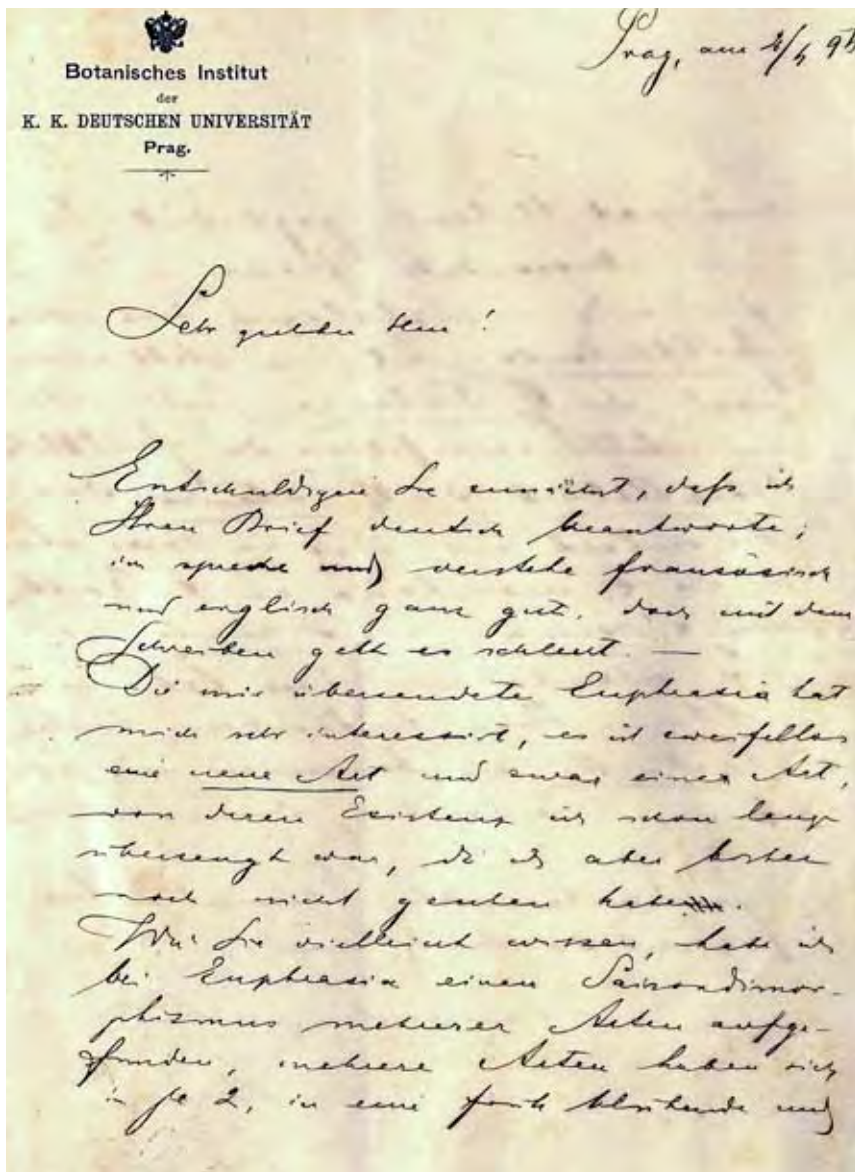 Botanisches Institut
der
K. K. DEUTSCHEN UNIVERSITÄT
Prag.
Prag, am
Sehr geehrter Herr!
Entschuldigen Sie zunächst, daſs ich
Ihren Brief deutsch beantworte;
ich spreche und verstehe französisch
und englisch ganz gut, doch mit dem
Schreiben geht es schlecht. —
Die mir übersendete Euphrasia hat
mich sehr interessirt, es ist zweifellos
eine neue Art und zwar eine Art,
von deren Existenz ich schon lange
überzeugt war, die ich aber bisher
noch nicht gesehen habe.
Wie Sie vielleicht wissen, habe ich
bei Euphrasia einen Saisondimor-
phismus mehrerer Arten aufge-
funden, mehrere Arten haben sich
in je 2, in eine früh blühende und